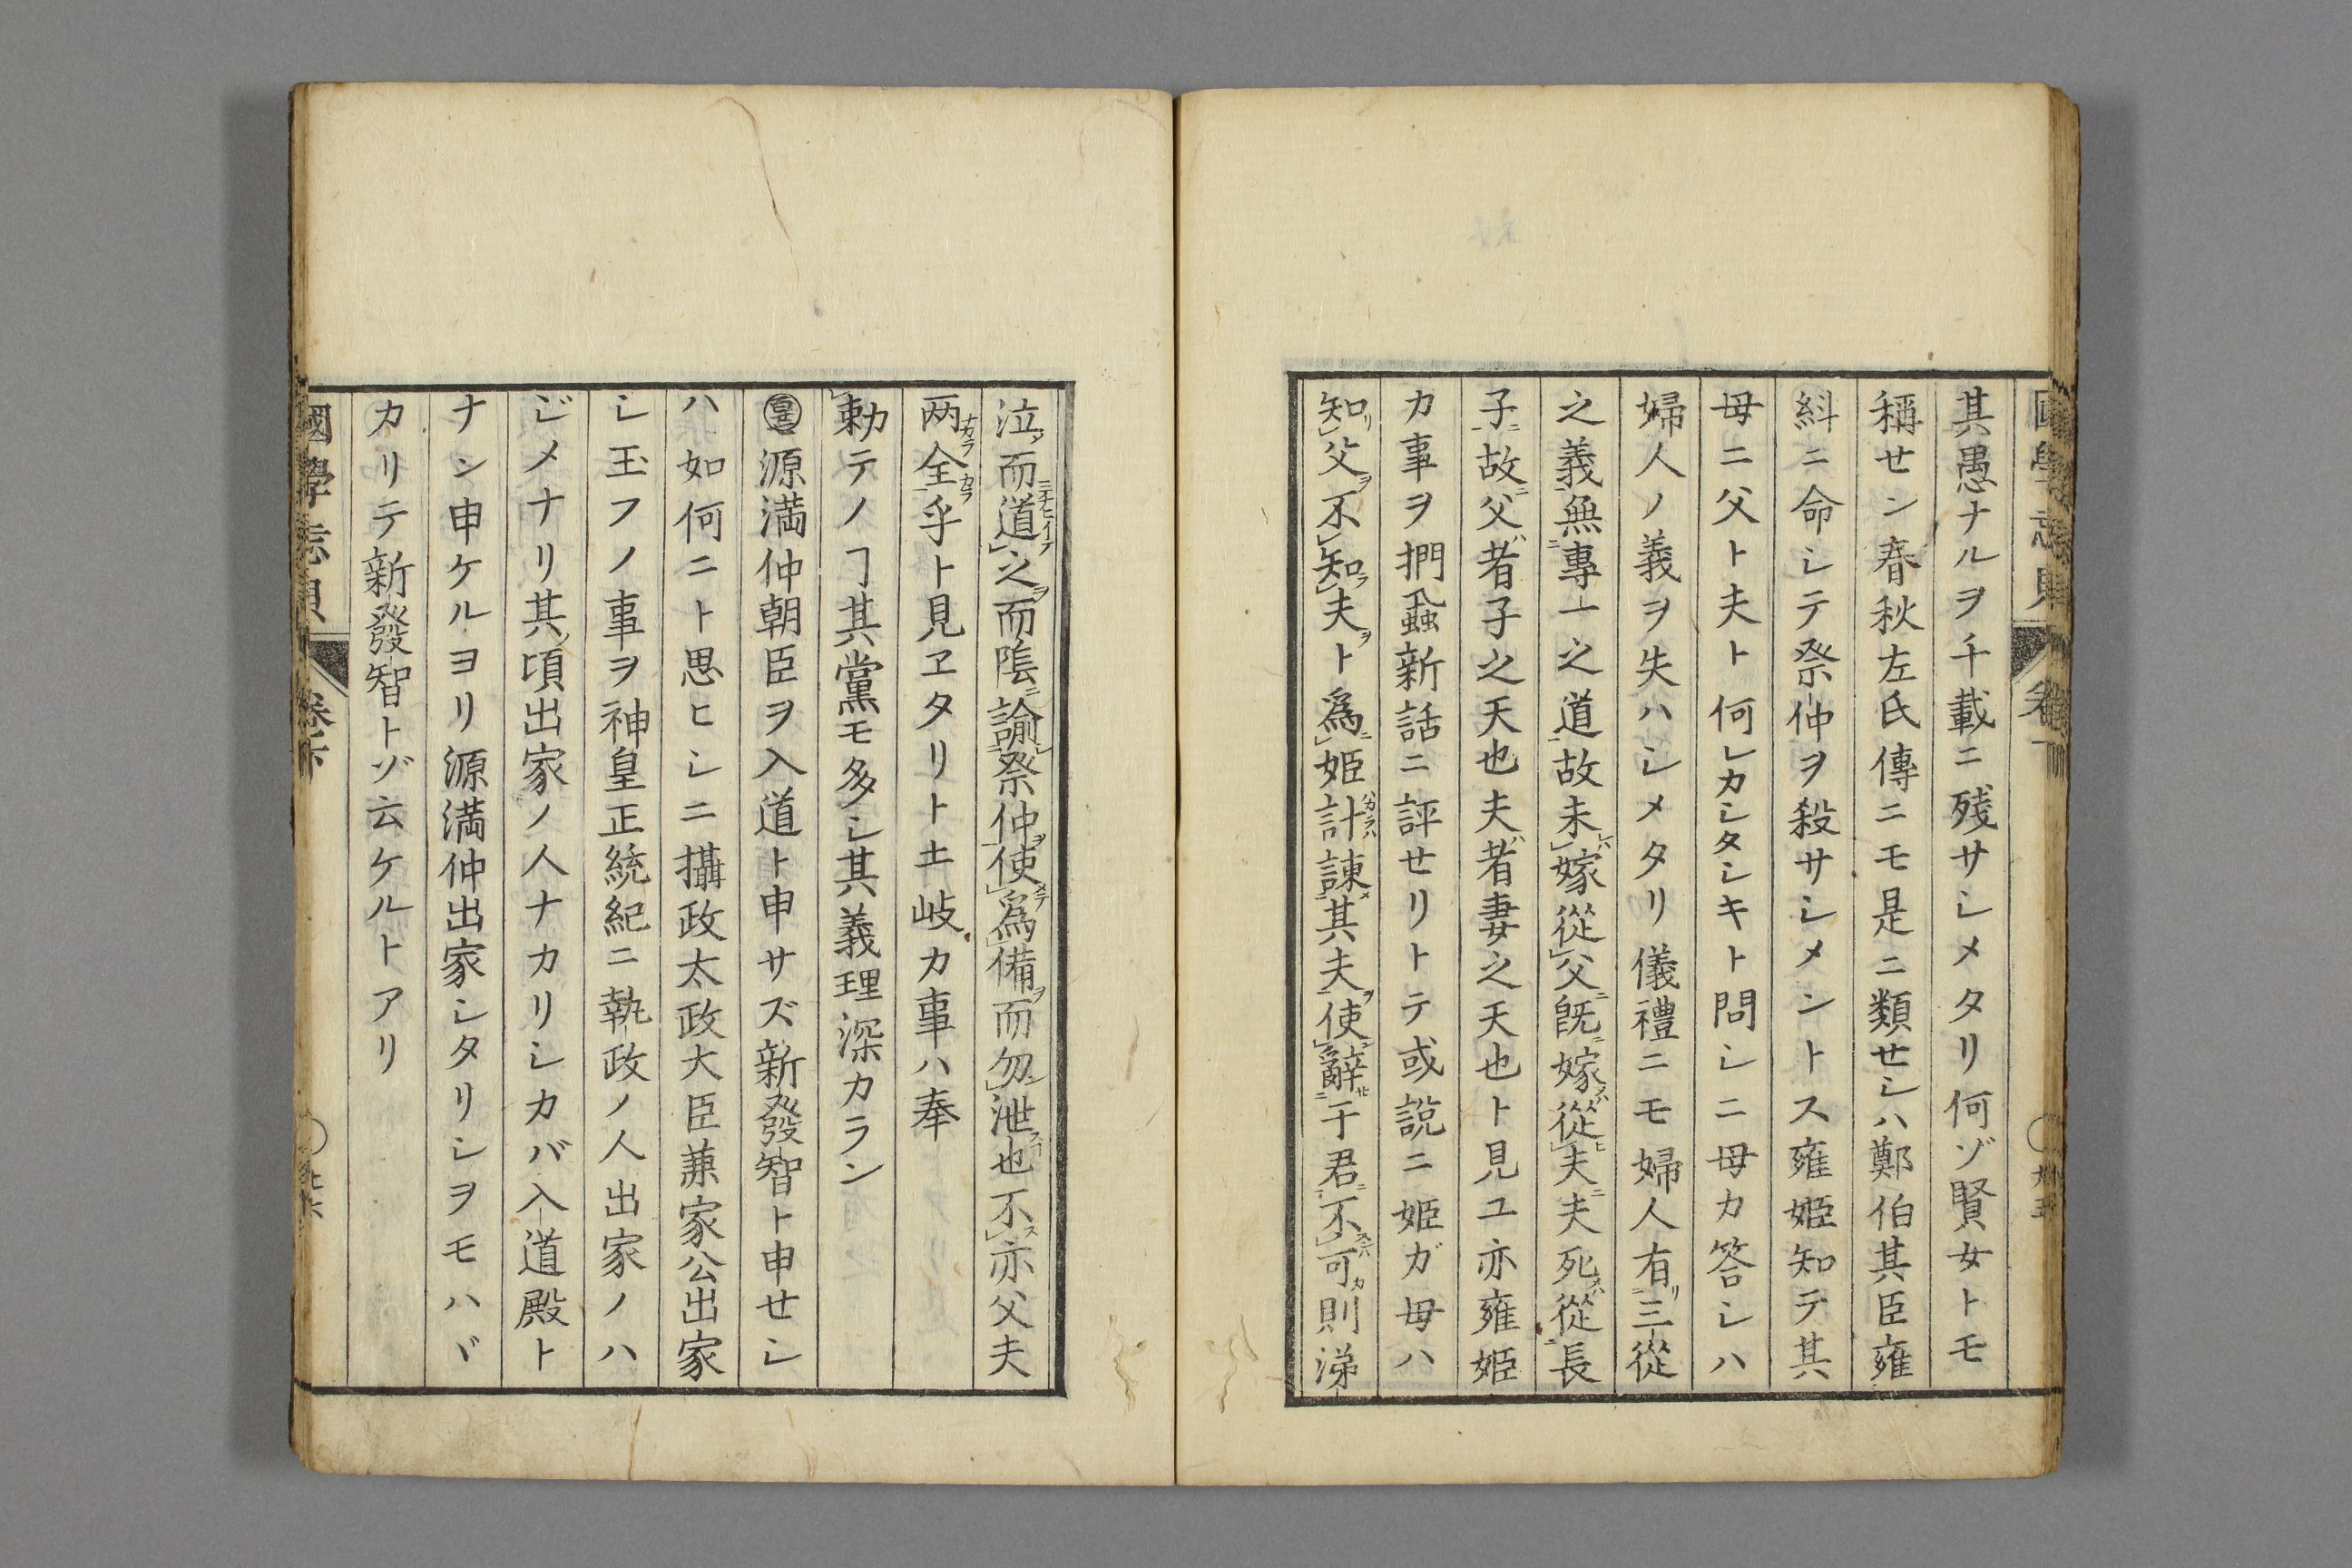 其愚ナルヲ千載ニ殘サシメタリ何ゾ賢女トモ
稱セン春秋左氏傳ニモ是ニ類セシハ鄭伯其臣雍
糾ニ命シテ祭仲ヲ殺サシメントス雍姫知テ其
母ニ父ト夫ト何レカシタシキト問シニ母カ答シハ
婦人ノ義ヲ失ハシメタリ儀禮ニモ婦人有三從
之義無專一之道故未嫁從父既嫁從夫夫死從長
子故父者子之天也夫者妻之天也ト見ユ亦雍姫
カ事ヲ捫蝨新話ニ評セリトテ或說ニ姫ガ母ハ
知父不知夫ト爲姫計諫其夫使辭于君不可則涕
泣而道之而陰諭祭仲使爲備而勿泄也不亦父夫
两全乎ト見ヱタリト土岐カ事ハ奉
勅テノヿ其黨モ多シ其義理深カラン
源満仲朝臣ヲ入道ト申サズ新發智ト申セシ
ハ如何ニト思ヒシニ攝政太政大臣兼家公出家
シ玉フノ事ヲ神皇正統紀ニ執政ノ人出家ノハ
ジメナリ其頃出家ノ人ナカリシカバ入道殿ト
ナン申ケルヨリ源満仲出家シタリシヲモハヾ
カリテ新發智トゾ云ケルトアリ
國學忘貝